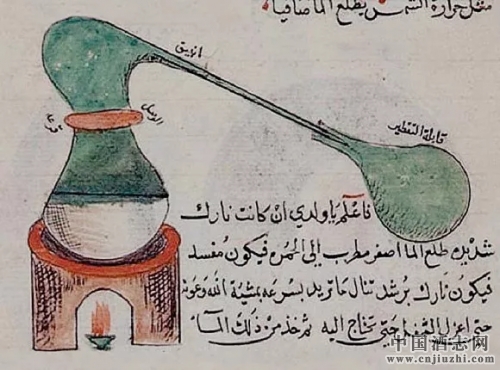 مثل حرارة الشمس يطلع الما صافيا
الانبيق
قابلة التقطير
فاعلم يا ولدي ان كانت نارك
شديده طلع الما اصفر مطرب الى الحمره فيكون مفسد
فيكون نارك برشد تنال ما تريد بسرعه بمشية الله وعونه
حتى تحتاج اليه ثم خذ من ذلك الما
中国酒志网
www.cnjiuzhi.com